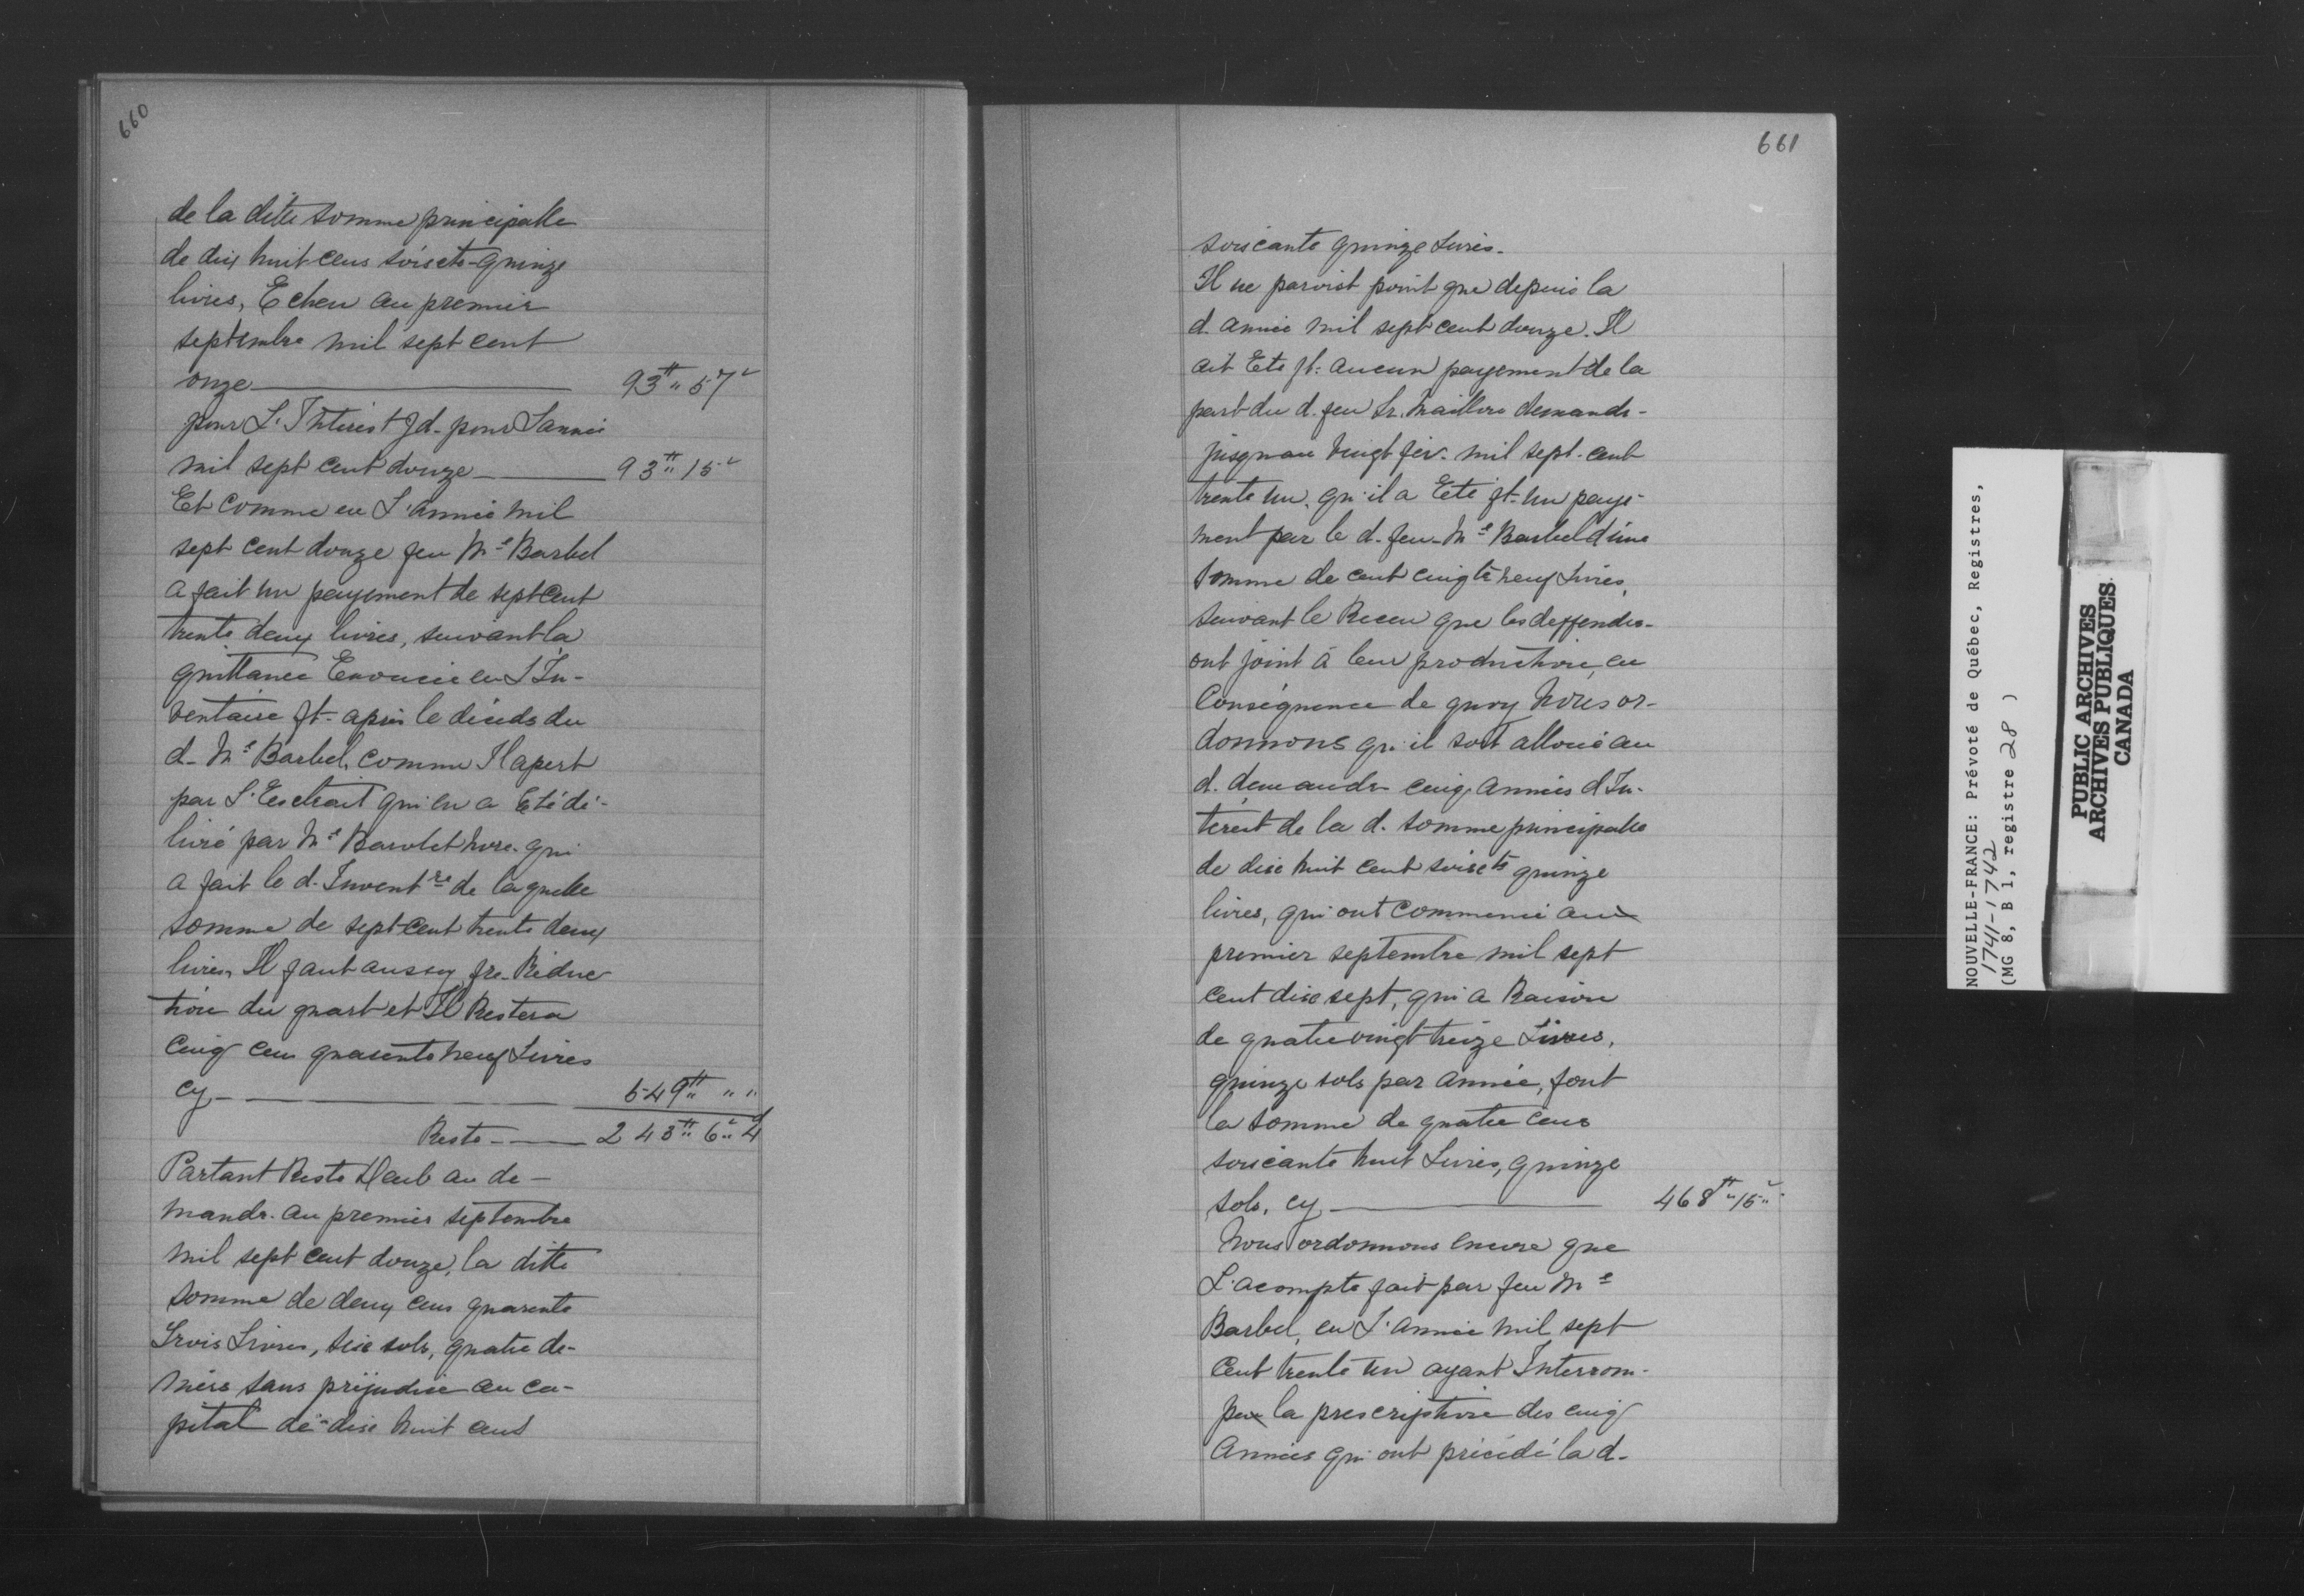 660
de la ditte somme principalle
de dix huit cens soixte-quinze
livres, Echeu au premier
septembre mil sept cent
onze ——— 93 ₶ " 5 7
pour L'Interest Jd. pour Lannée
mil sept cent douze ——— 93 ₶ " 15
Et comme en L'année mil
sept cent douze feu Me Barbel
a fait un payement de sept cent
trente deux livres, suivant la
quittance Enoncée en L'In-
ventaire ft. après le décèds du
d. Me Barbel, comme Il apert
par L'Esctrait qui en a Eté dé-
livré par Me Barolet nore. qui
a fait le d. Inventre de laquelle
somme de sept cent trente deux
livres, Il faut aussy fre. Réduc
tion du quart et Il Restera
Cinq cens quarente neuf Livres
cy ——— 549 ₶ " "
Reste ——— 243 ₶ " 6 " 4 d
Partant Reste Deub au de-
mandr. au premier septembre
mil sept cent douze, la ditte
somme de deux cens quarente
Trois Livres, sise sols, quatre de-
niers sans préjudice au ca-
pital de dise huit cent
661
soiscante quinze Livres.
Il ne paroist point que depuis la
d. année mil sept cent douze. Il
ait Eté ft. aucun payement de la
part du d. feu Sr. Maillou demandr.
jusqu'au vingt fév. mil sept. cent
trente un, qu'il a Eté ft. un paye-
ment par le d. feu Me Barbel d'une
somme de cent cinqte neuf Livres,
suivant le Receu que les deffendrs.
ont joint à leur production, en
Conséquence de quoy Nous or-
donnons qu'il soit alloué au
d. demandr cinq années d'In-
térest de la d. somme principalle
de dise huit cent soiscte quinze
livres, qui ont commencé aux
premier septembre mil sept
cent dise sept, qui a Raison
de quatre vingt treize Livres,
quinze sols par année, font
la somme de quatre cens
soiscante huit Livres, quinze
sols, cy ——— 468 ₶ " 15 "
Nous ordonnons encore que
L'acompte fait par feu Me
Barbel, en L'année mil sept
cent trente un ayant Interrom-
pue la prescription des cinq
Années qui ont précédé la d.
NOUVELLE-FRANCE: Prévoté de Québec, Registres,
1741-1742
(MG 8, B 1, registre 28 )
PUBLIC ARCHIVES
ARCHIVES PUBLIQUES
CANADA